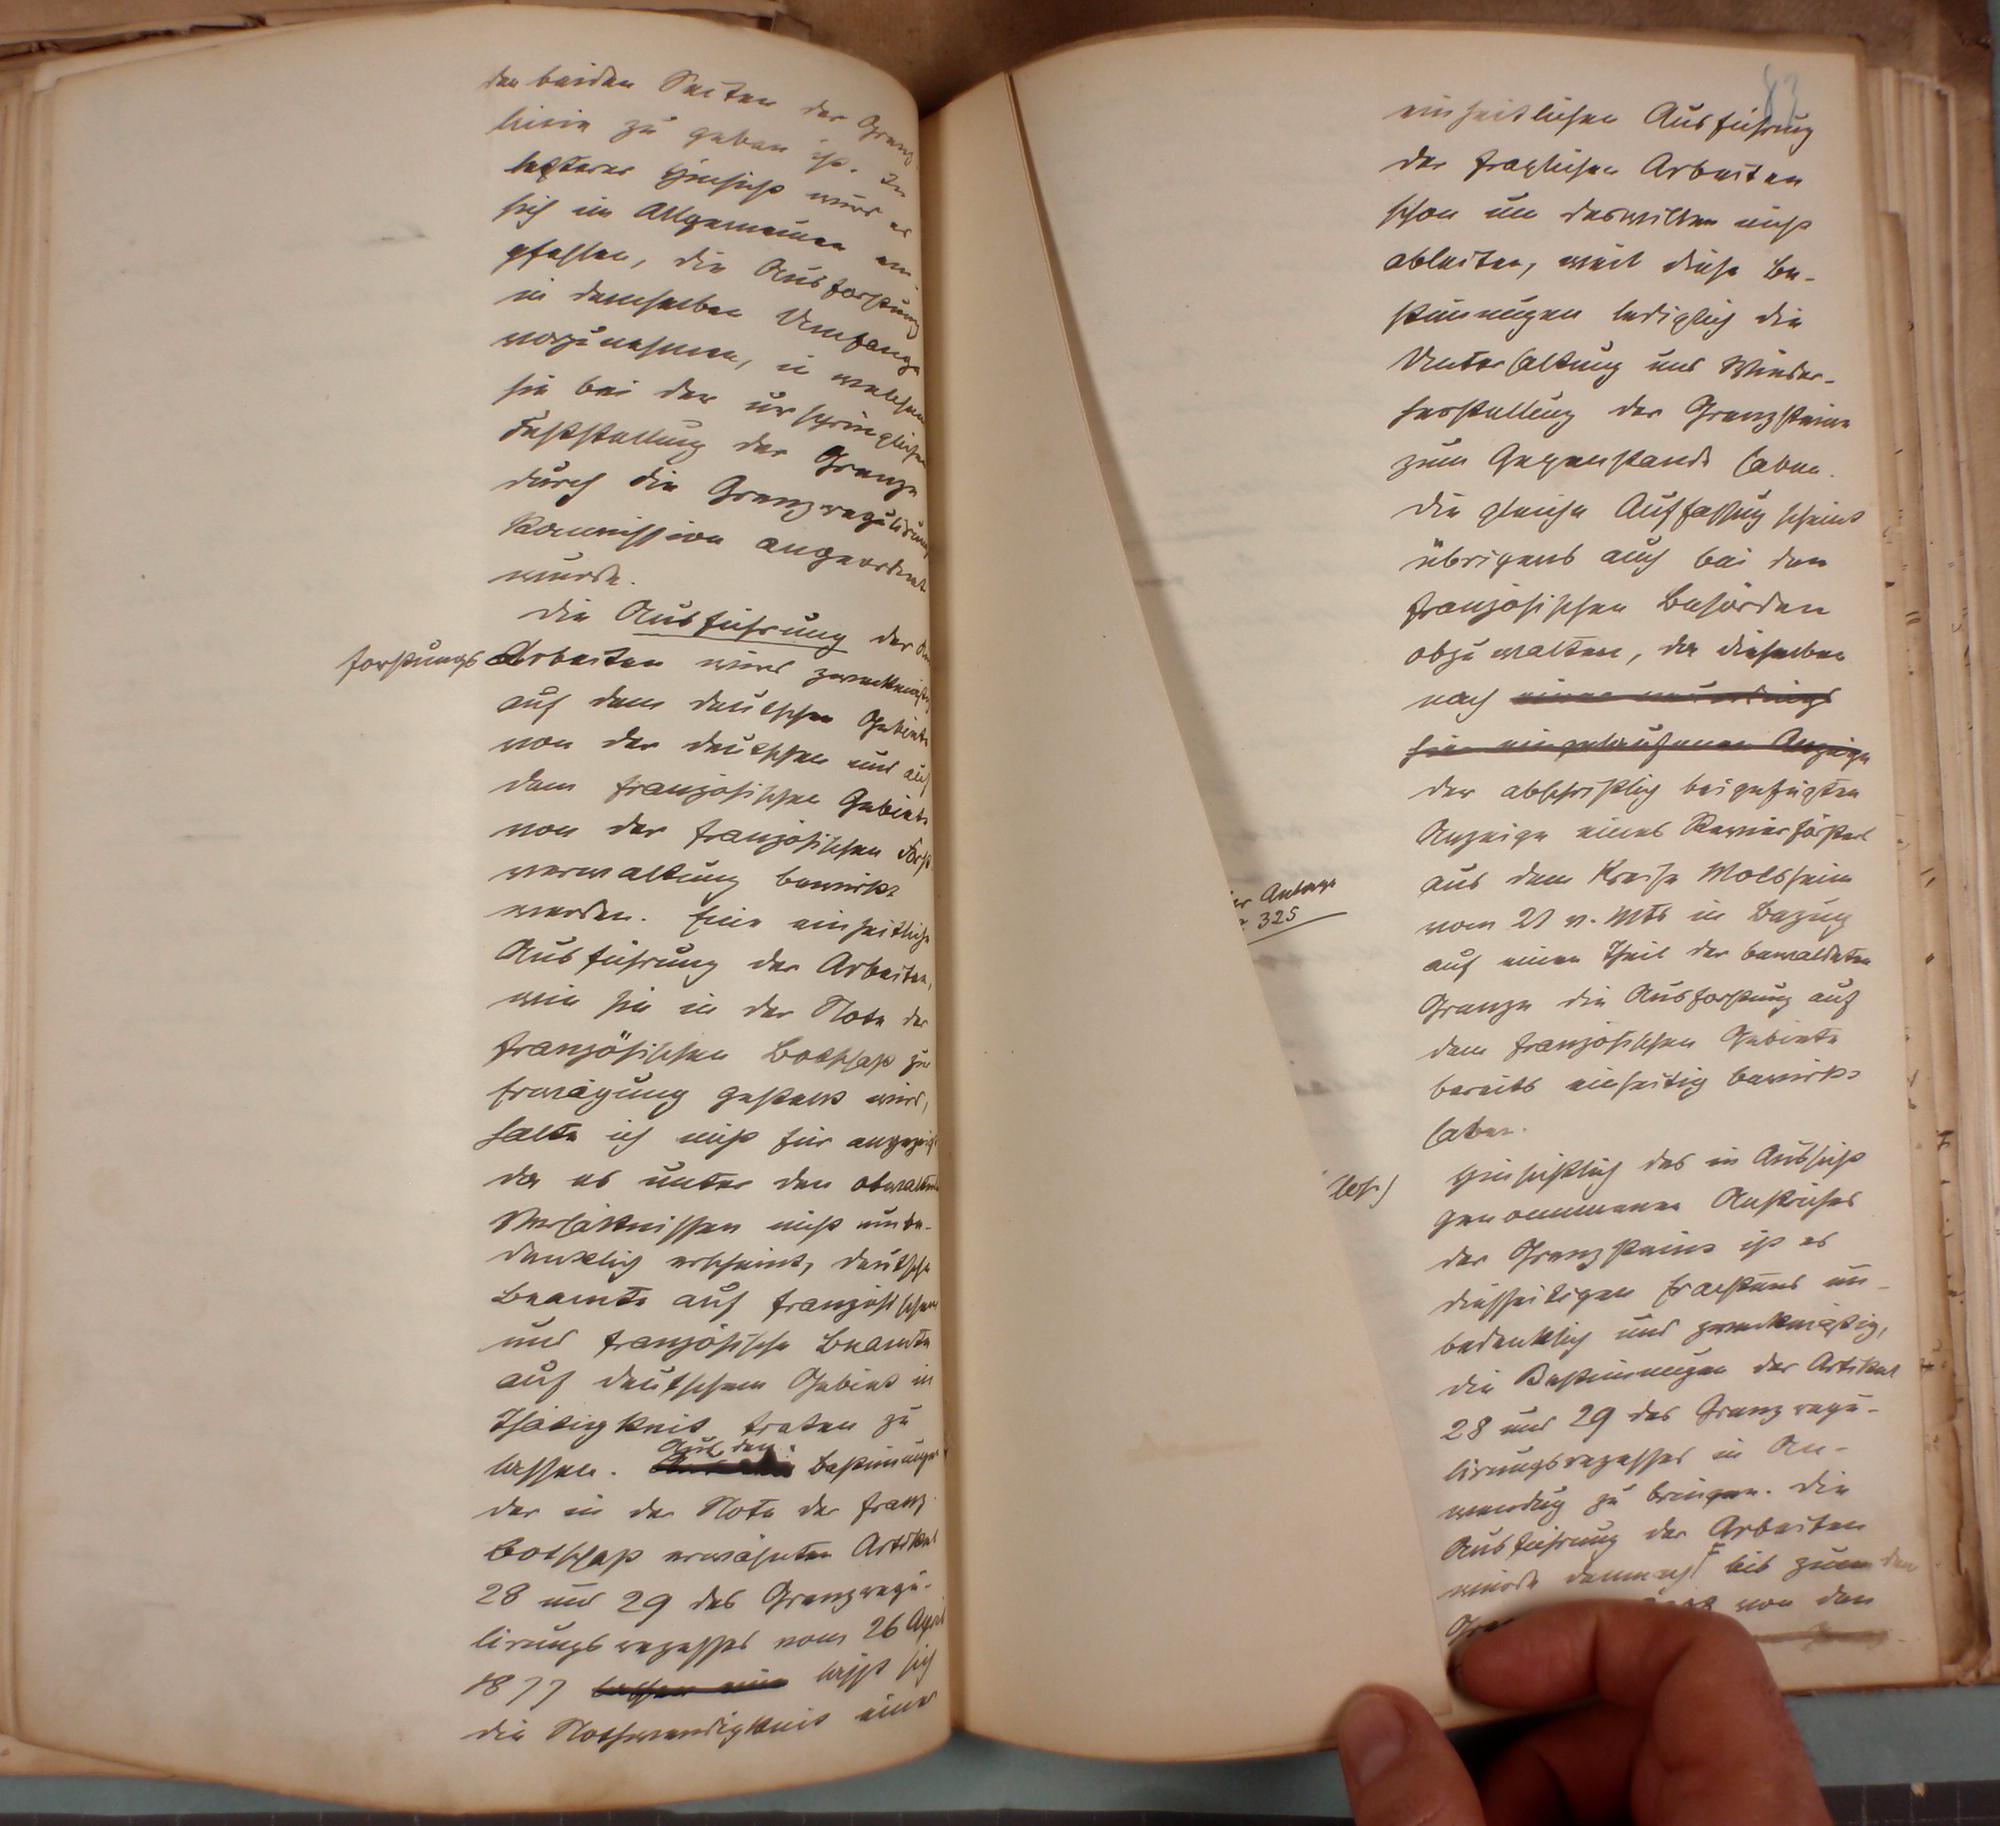 den beiden Seiten der Grenz-
linie zu geben ist. In
letzterer Hinsicht wird es
sich im Allgemeinen em-
pfehlen, die Ausforstung
in demselben Umfange
vorzunehmen, in welchem
sie bei der ursprünglichen
Feststellung der Grenze
durch die Grenzregulirungs
Kommission angeordnet
wurde.
Die Ausführung der Aus
forstungs Arbeiten wird zweckmäßig
auf dem deutschen Gebiete
von der deutschen und auf
dem französischen Gebiete
von der französischen Forst
verwaltung bewirkt
werden. Eine einheitliche
Ausführung der Arbeiten,
wie sie in der Note der
französischen Botschaft zur
Erwägung gestellt wird,
halte ich nicht für angezeigt
da es unter den obwaltenden
Verhältnissen nicht unbe-
denklich erscheint, deutsche
Beamte auf französischem
und französische Beamte
auf deutschem Gebiet in
Thätigkeit treten zu
lassen. Aus den Bestimmungen
der in der Note der franz.
Botschaft erwähnten Artikel
28 und 29 des Grenzregu-
lirungsrezesses vom 26 April
1877 lassen eine läßt sich
die Nothwendigkeit einer
83
einheitlichen Ausführung
der fraglichen Arbeiten
schon um deswillen nicht
ableiten, weil diese Be-
stimmungen lediglich die
Unterhaltung und Wieder-
herstellung der Grenzsteine
zum Gegenstande haben.
Die gleiche Auffassung scheint
übrigens auch bei den
französischen Behörden
obzuwalten, da dieselben
nach einer neuerdings
hier eingelaufenen Anzeige
der abschriftlich beigefügten
Anzeige eines Revierförsters
aus dem Kreise Molsheim
vom 21 v. Mts in Bezug
auf einen Theil der bewaldeten
Grenze die Ausforstung auf
dem französischen Gebiete
bereits einseitig bewirkt
haben.
Anlage
325
Hinsichtlich des in Aussicht
genommenen Anstriches
der Grenzsteine ist es
diesseitigen Erachtens un-
bedenklich und zweckmäßig,
die Bestimmungen der Artikel
28 und 29 des Grenzregu-
lirungsrezesses in An-
wendung zu bringen. Die
Ausführung der Arbeiten
würde demnach bis zum den
von den